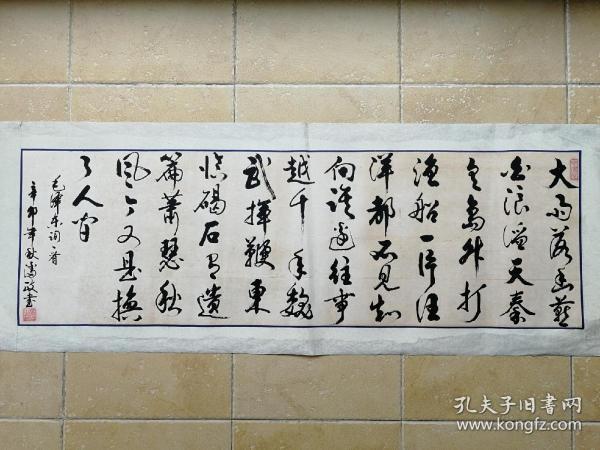 大雨落幽燕
白浪滔天秦
皇島外打
漁船一片汪
洋都不見知
向誰邊往事
越千年魏
武揮鞭東
臨碣石有遺
篇蕭瑟秋
風今又是換
了人間
毛澤东词一首
辛卯年秋
孔夫子旧书网
www.kongfz.com